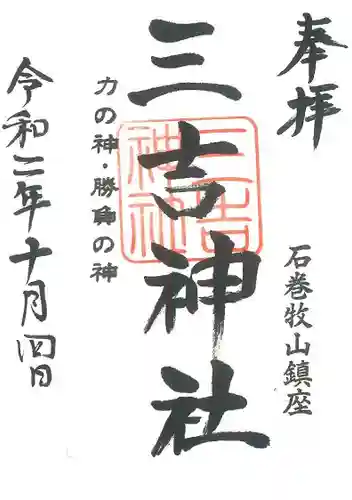 奉拝
石巻牧山鎮座
三吉神社
三吉神社
力の神・勝負の神
令和二年十月四日